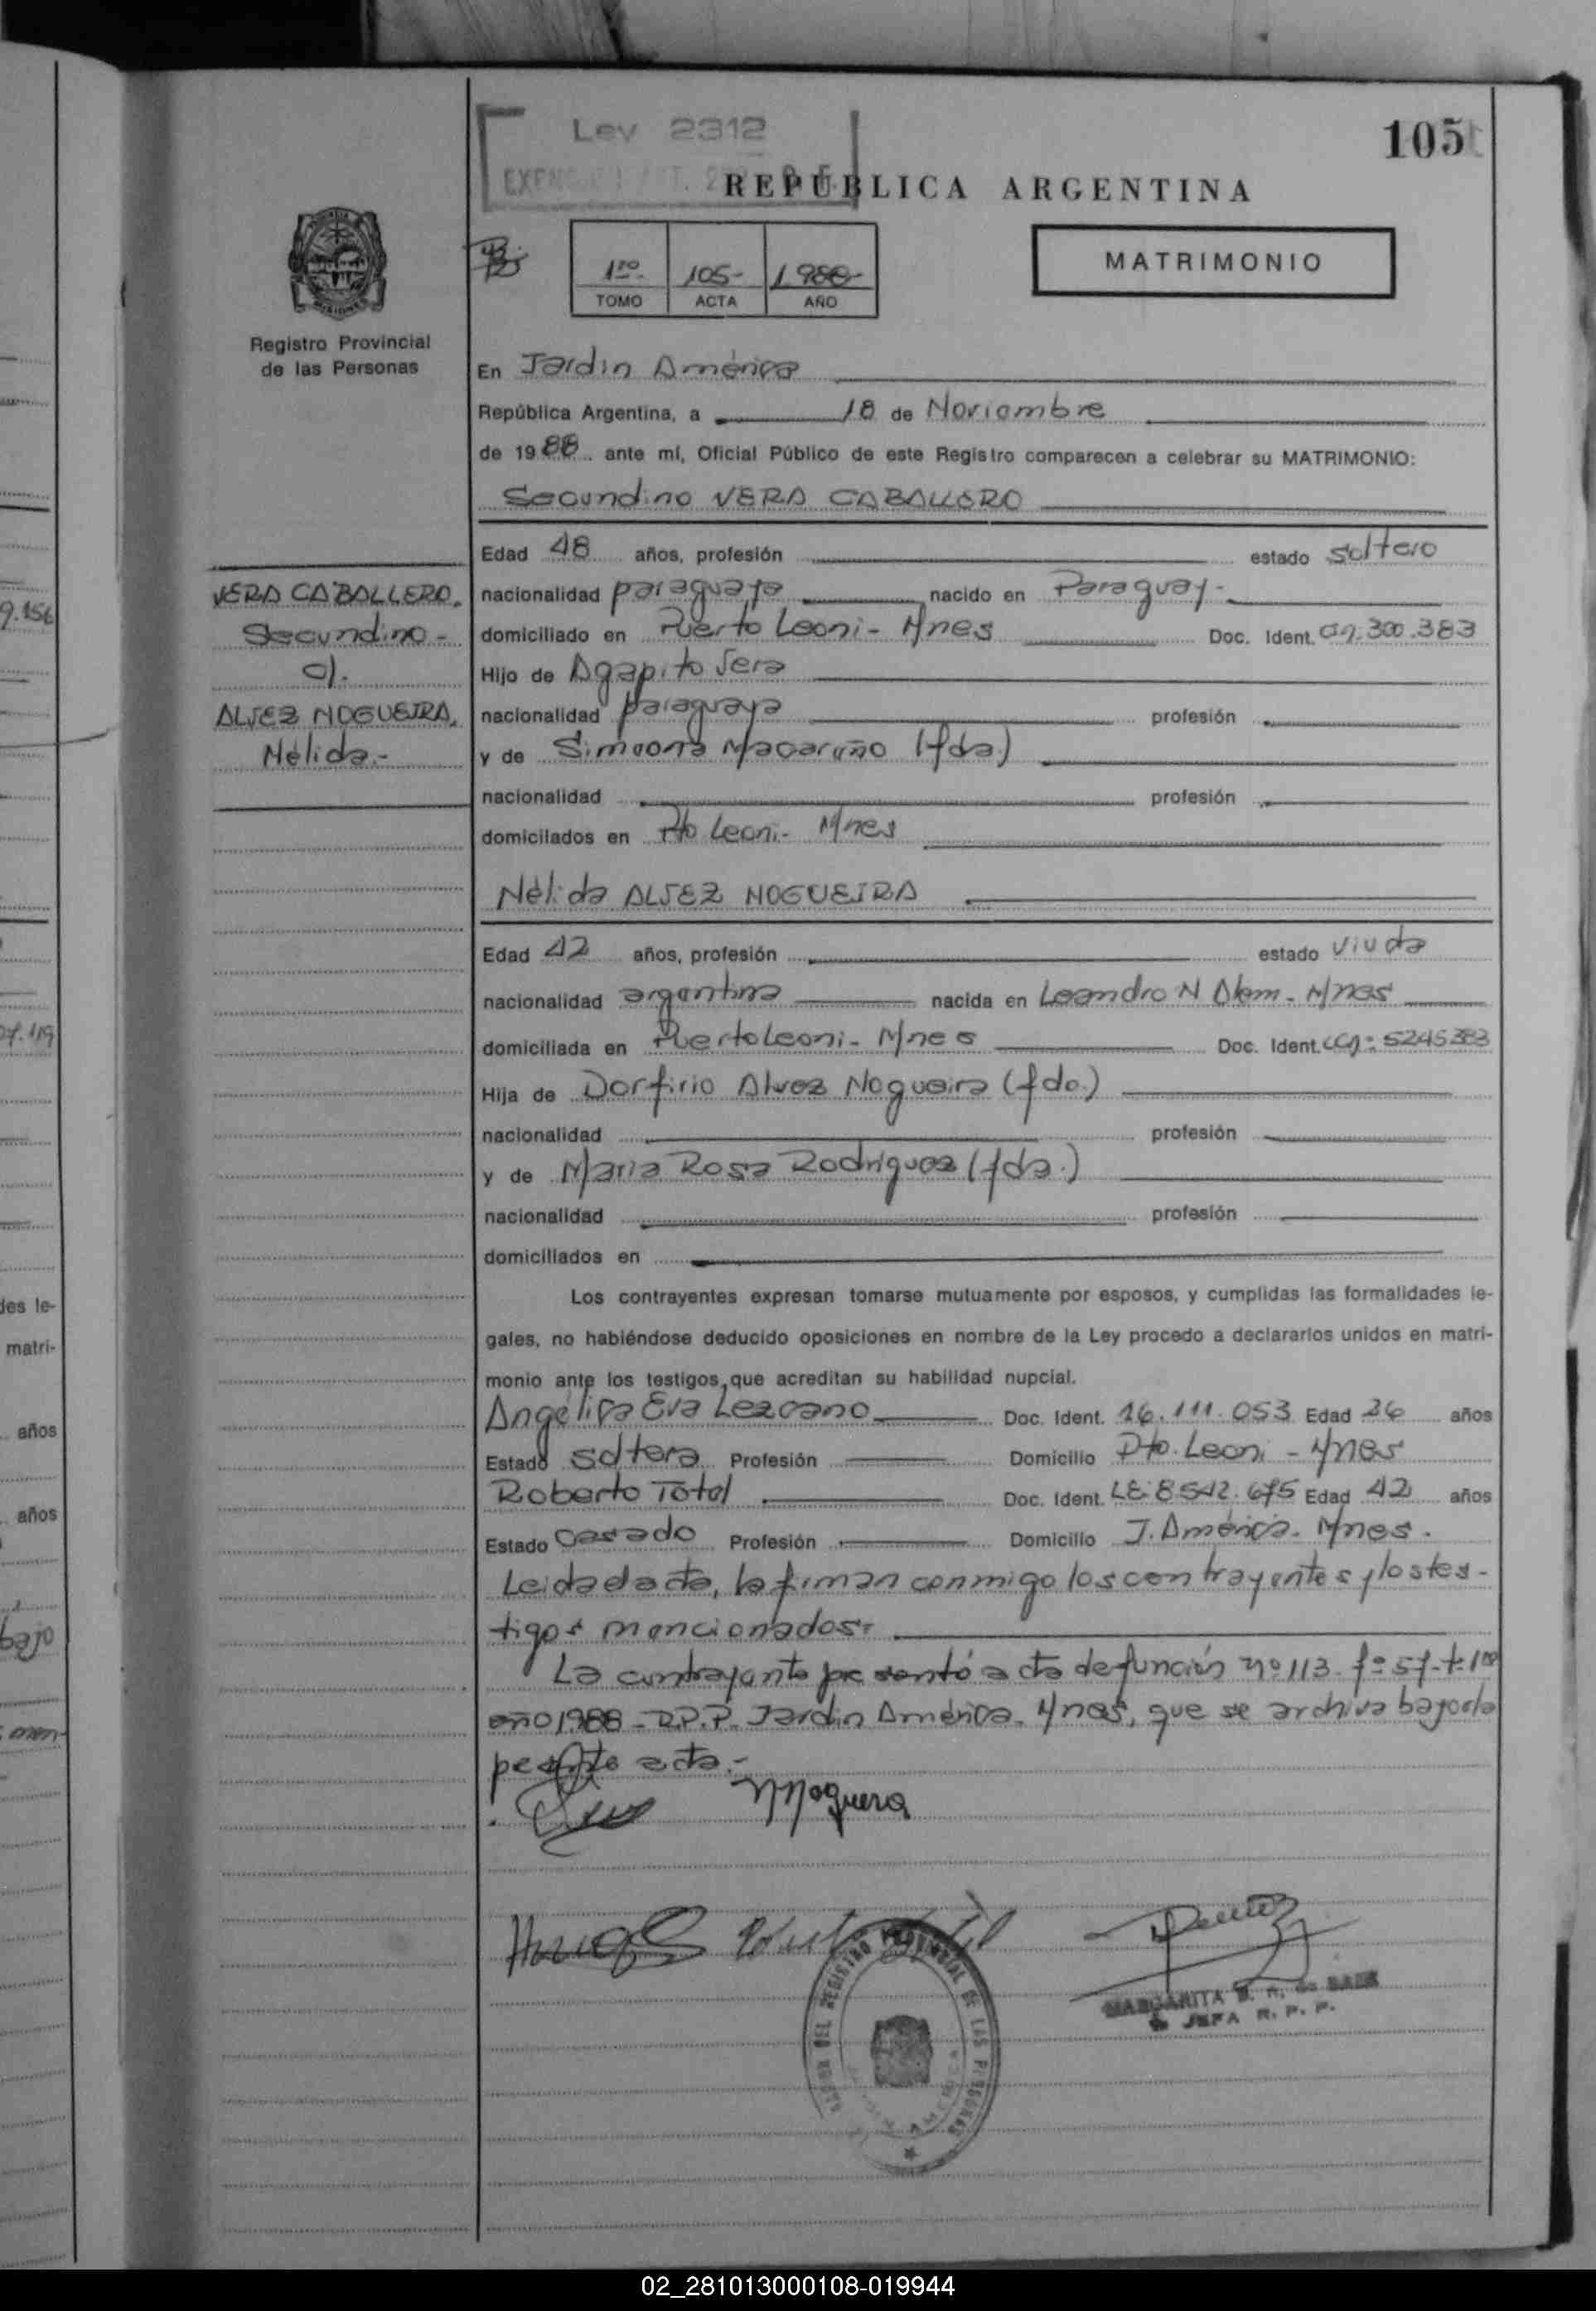 105
Ley 2312
REPUBLICA ARGENTINA
1ro. 105- 1.988-
TOMO ACTA AÑO
MATRIMONIO
Registro Provincial
de las Personas
En Jardin América
República Argentina, a 18 de Noviembre
de 1988 ante mí, Oficial Público de este Registro comparecen a celebrar su MATRIMONIO:
Secundino VERA CABALLERO
Edad 48 años, profesión estado soltero
VERA CABALLERO,
Secundino -
c/.
ALVEZ NOGUEIRA,
Nélida.-
nacionalidad paraguaya nacido en Paraguay-
domiciliado en Puerto Leoni - Mnes Doc. Ident. 300.383
Hijo de Agapito Vera
nacionalidad paraguaya profesión
y de Simeona (fda.)
nacionalidad profesión
domicilados en Pto Leoni.- Mnes
Nélida ALVEZ NOGUEIRA
Edad 42 años, profesión estado viuda
nacionalidad argentina nacida en Leandro N Alem - Mnes
domiciliada en Puerto Leoni - Mnes Doc. Ident. 5245383
Hija de Porfirio Alvez Nogueira (fdo.)
nacionalidad profesión
y de Maria Rosa Rodriguez (fda.)
nacionalidad profesión
domiciliados en
Los contrayentes expresan tomarse mutuamente por esposos, y cumplidas las formalidades le-
gales, no habiéndose deducido oposiciones en nombre de la Ley procedo a declararlos unidos en matri-
monio ante los testigos, que acreditan su habilidad nupcial.
Angélica Eva Lezcano Doc. Ident. 16.111.053 Edad 26 años
Estado soltera Profesión Domicilio Pto. Leoni - Mnes
Roberto Totol Doc. Ident. LE: 8542.675 Edad 42 años
Estado casado Profesión Domicilio J. América. Mnes.
Leida el acta, la firman conmigo los contrayentes y los tes-
tigos mencionados-
La contrayente presentó acta defunción nº 113 fº 57- t: 1ro
año 1988 - R.P.P. Jardin América. Mnes, que se archiva bajo la
acta.-
NNoguera
REGISTRO PROVINCIAL DE LAS PERSONAS
MARGARITA
JEFA R. P. P.
9.156
07.119
des le-
matri-
años
años
bajo
02_281013000108-019944